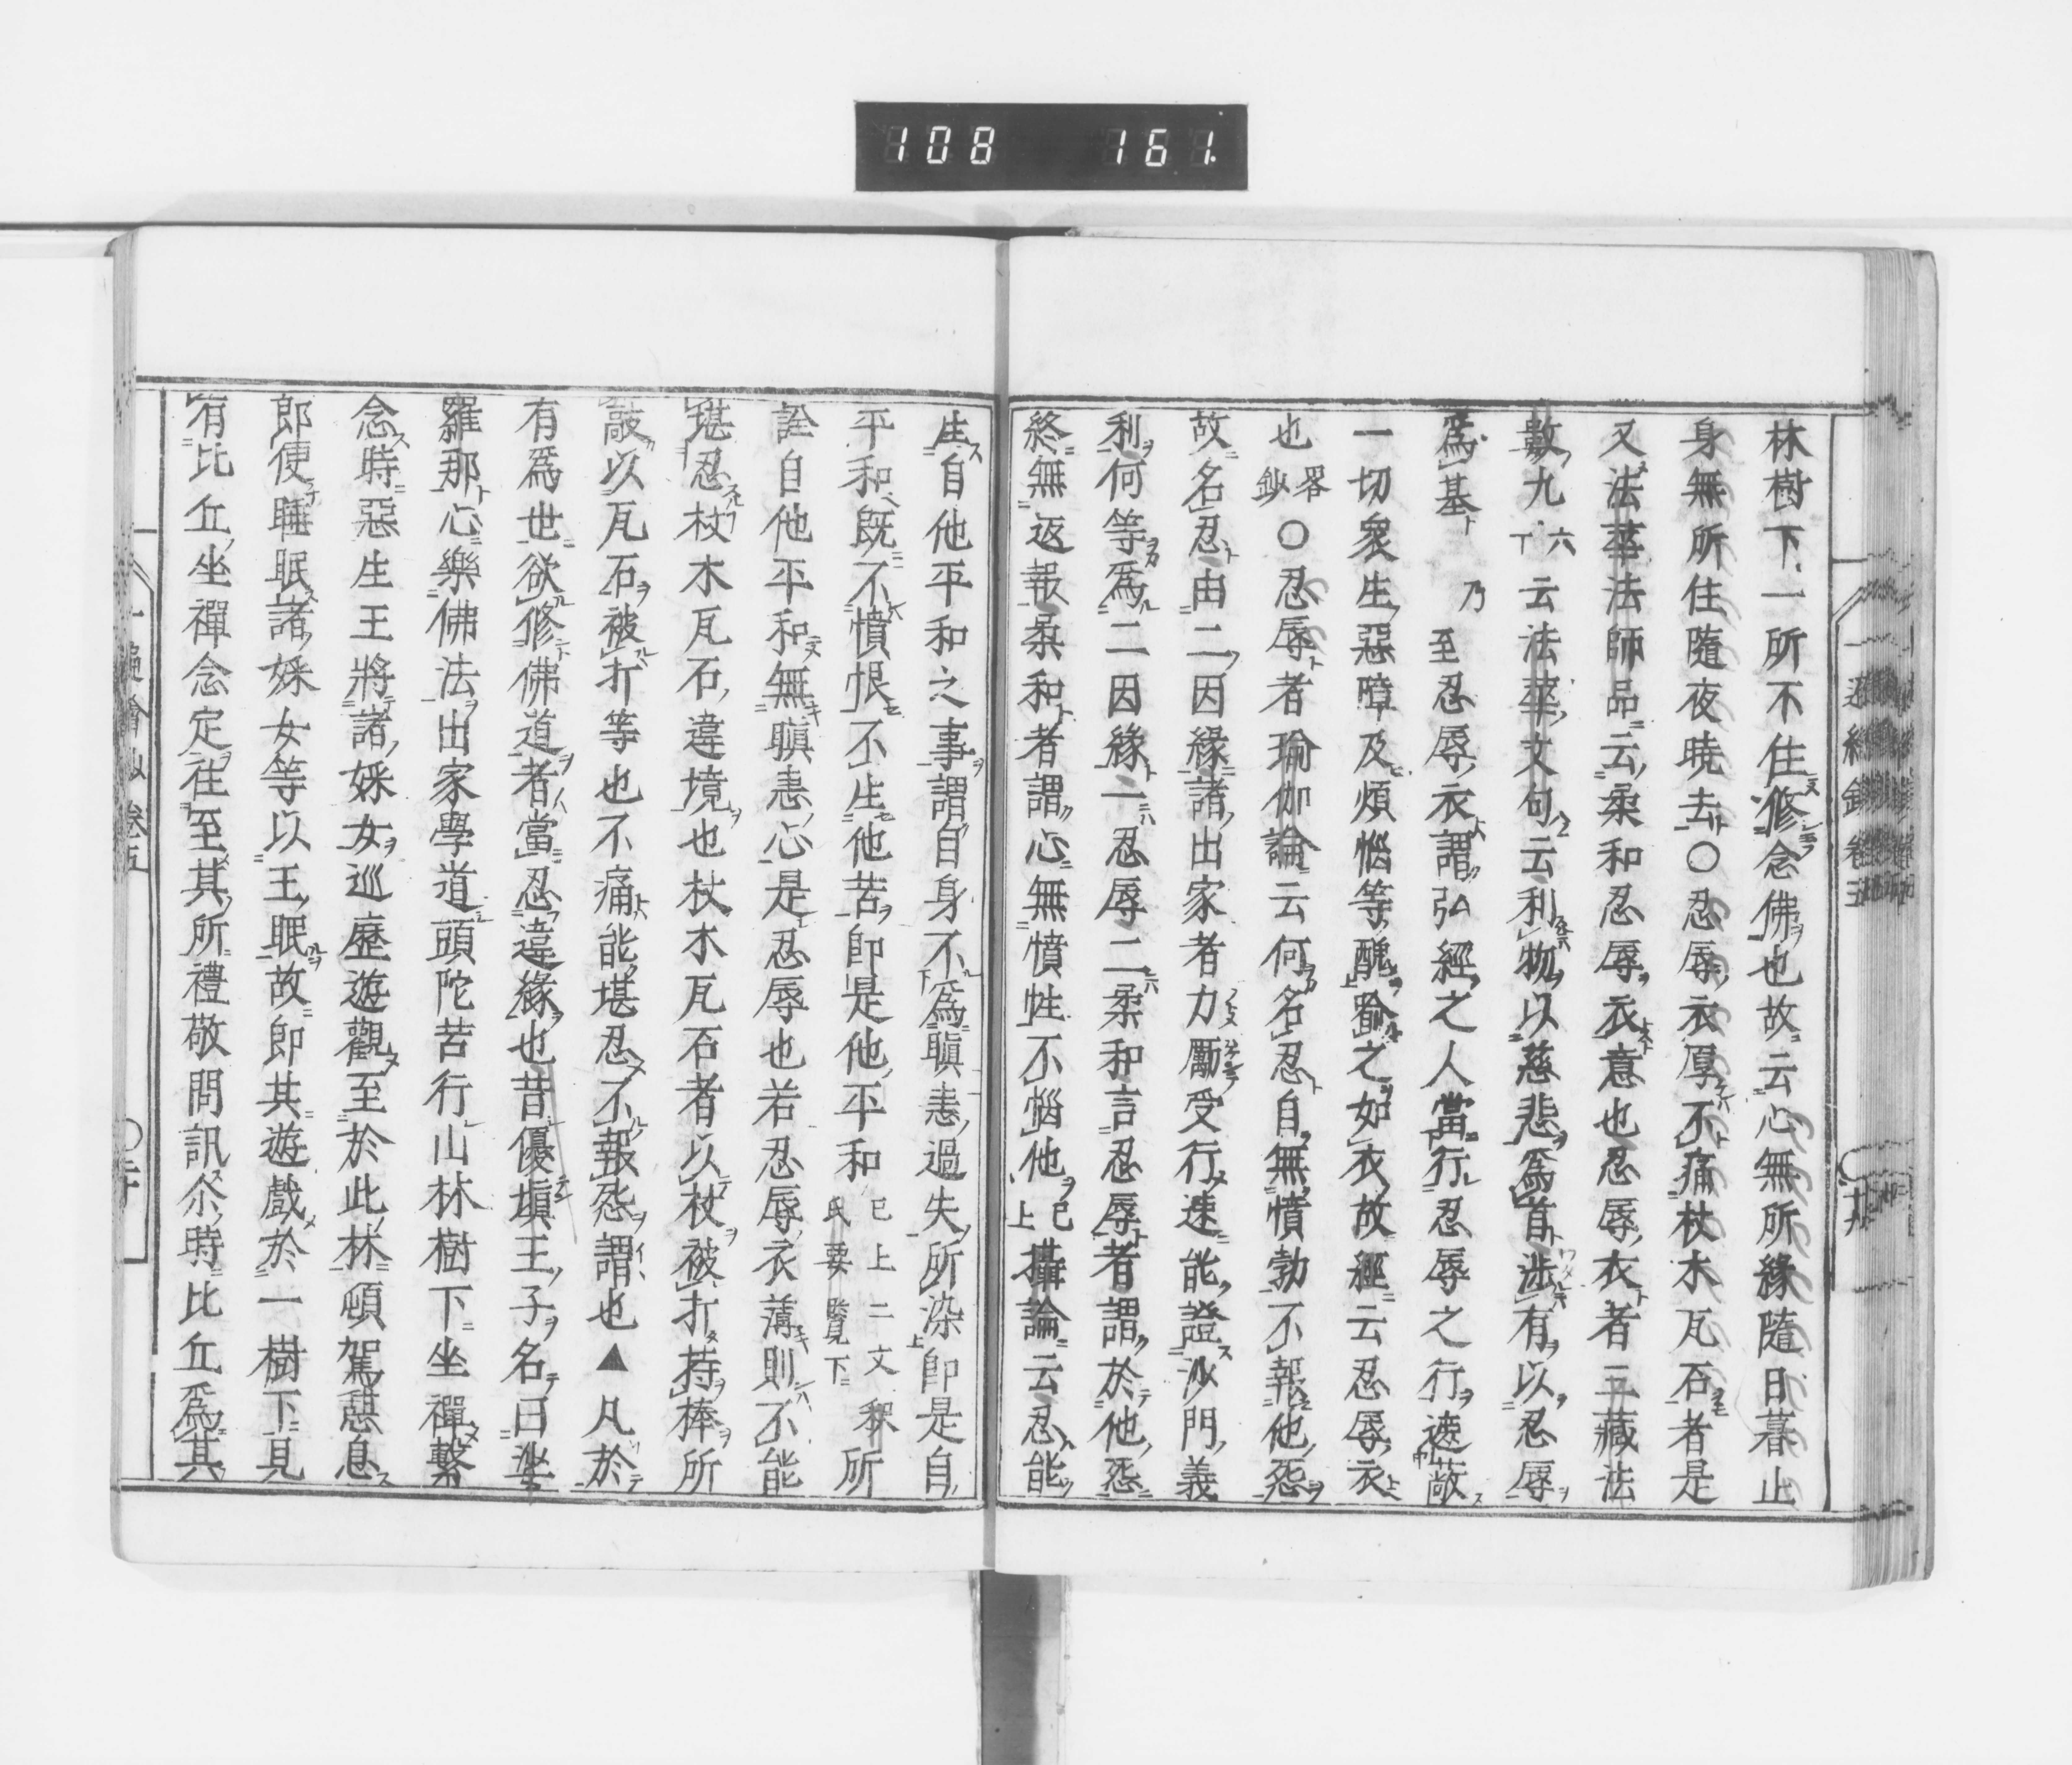 108 161
林樹下一所不住修念佛也故云心無所緣隨日暮止
身無所住隨夜曉去〇忍辱衣厚不痛杖木瓦石者是
又法華法師品云柔和忍辱衣意也忍辱衣者三藏法
數九六丁云法華文句云利物以慈悲爲首涉有以忍辱
爲基乃至忍辱衣謂弘經之人當行忍辱之行遮蔽
一切衆生惡障及煩惱等醜喩之如衣故經云忍辱衣
也畧鈔〇忍辱者瑜伽論云何名忍自無憤勃不報他怨
故名忍由二因緣諸出家者力勵受行速能證沙門義
利何等爲二因緣一忍辱二柔和言忍辱者謂於他怨
終無返報柔和者謂心無憤性不惱他已上攝論云忍能
生自他平和之事謂自身不爲瞋恚過失所染卽是自
平和既不憤恨不生他苦卽是他平和已上二文釈氏要覽下所
詮自他平和無瞋恚心是忍辱也若忍辱衣薄則不能
堪忍杖木瓦石違境也杖木瓦石者以杖被打持棒所
敲以瓦石被打等也不痛能堪忍不報怨謂也▲凡於
有爲世欲修佛道者當忍違緣也昔優塡王子名曰娑
羅那心樂佛法出家學道頭陀苦行山林樹下坐禪繫
念時惡生王將諸婇女巡歷遊觀至於此林頓駕憩息
卽便睡眠諸婇女等以王眠故卽其遊戲於一樹下見
有比丘坐禪念定往至其所禮敬問訊尒時比丘爲其